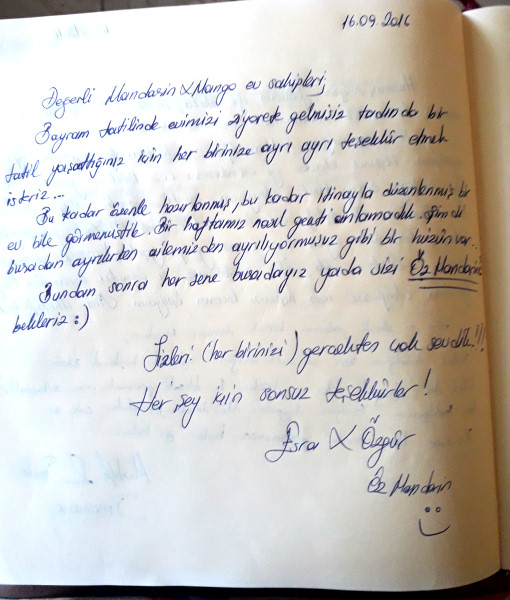 16.09.2016
Değerli Mandarin & Mango ev sahipleri,
Bayram tatilinde evimizi ziyarete gelmişiz tadında bir
tatil yaşattığınız için her birinize ayrı ayrı teşekkür etmek
isteriz...
Bu kadar özenle hazırlanmış, bu kadar itinayla düzenlenmiş bir
ev bile görmemiştik. Bir haftamız nasıl geçti anlamadık. Şimdi
buradan ayrılırken ailemizden ayrılıyormuşuz gibi bir hüzün var..
Bundan sonra her sene buradayız yada sizi Öz Mandarin
bekleriz :)
Sizleri (her birinizi) gerçekten çok sevdik!!!
Her şey için sonsuz teşekkürler!
Esra & Özgür
Öz Mandarin